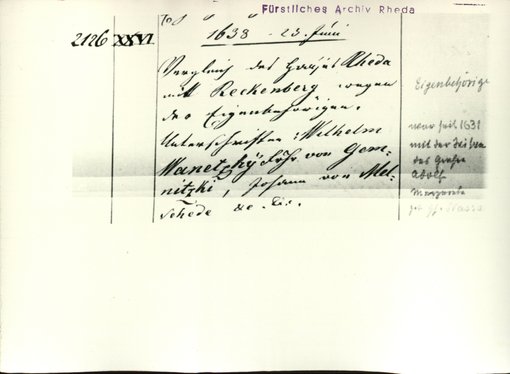 Fürstliches Archiv Rheda
1638 - 23. Juni
2126 XXVI
Vergleich des Hauses Rheda
mit Reckenberg wegen
der Eigenbehörigen.
Unterschriften: Wilhelm
von Gem-
nitzki, Johann von Mel-
schede
Eigenbehörige
war seit 1631
mit der
des Grafen
Adolf
Margareta